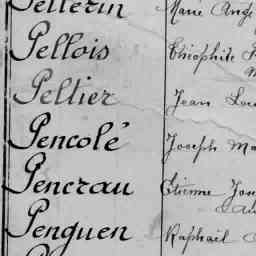 Pellerin Marie Ange
Pellois Théophile
Peltier Jean Lou
Pencolé Joseph Ma
Pencrau Etienne Jos
Penguen Raphaël